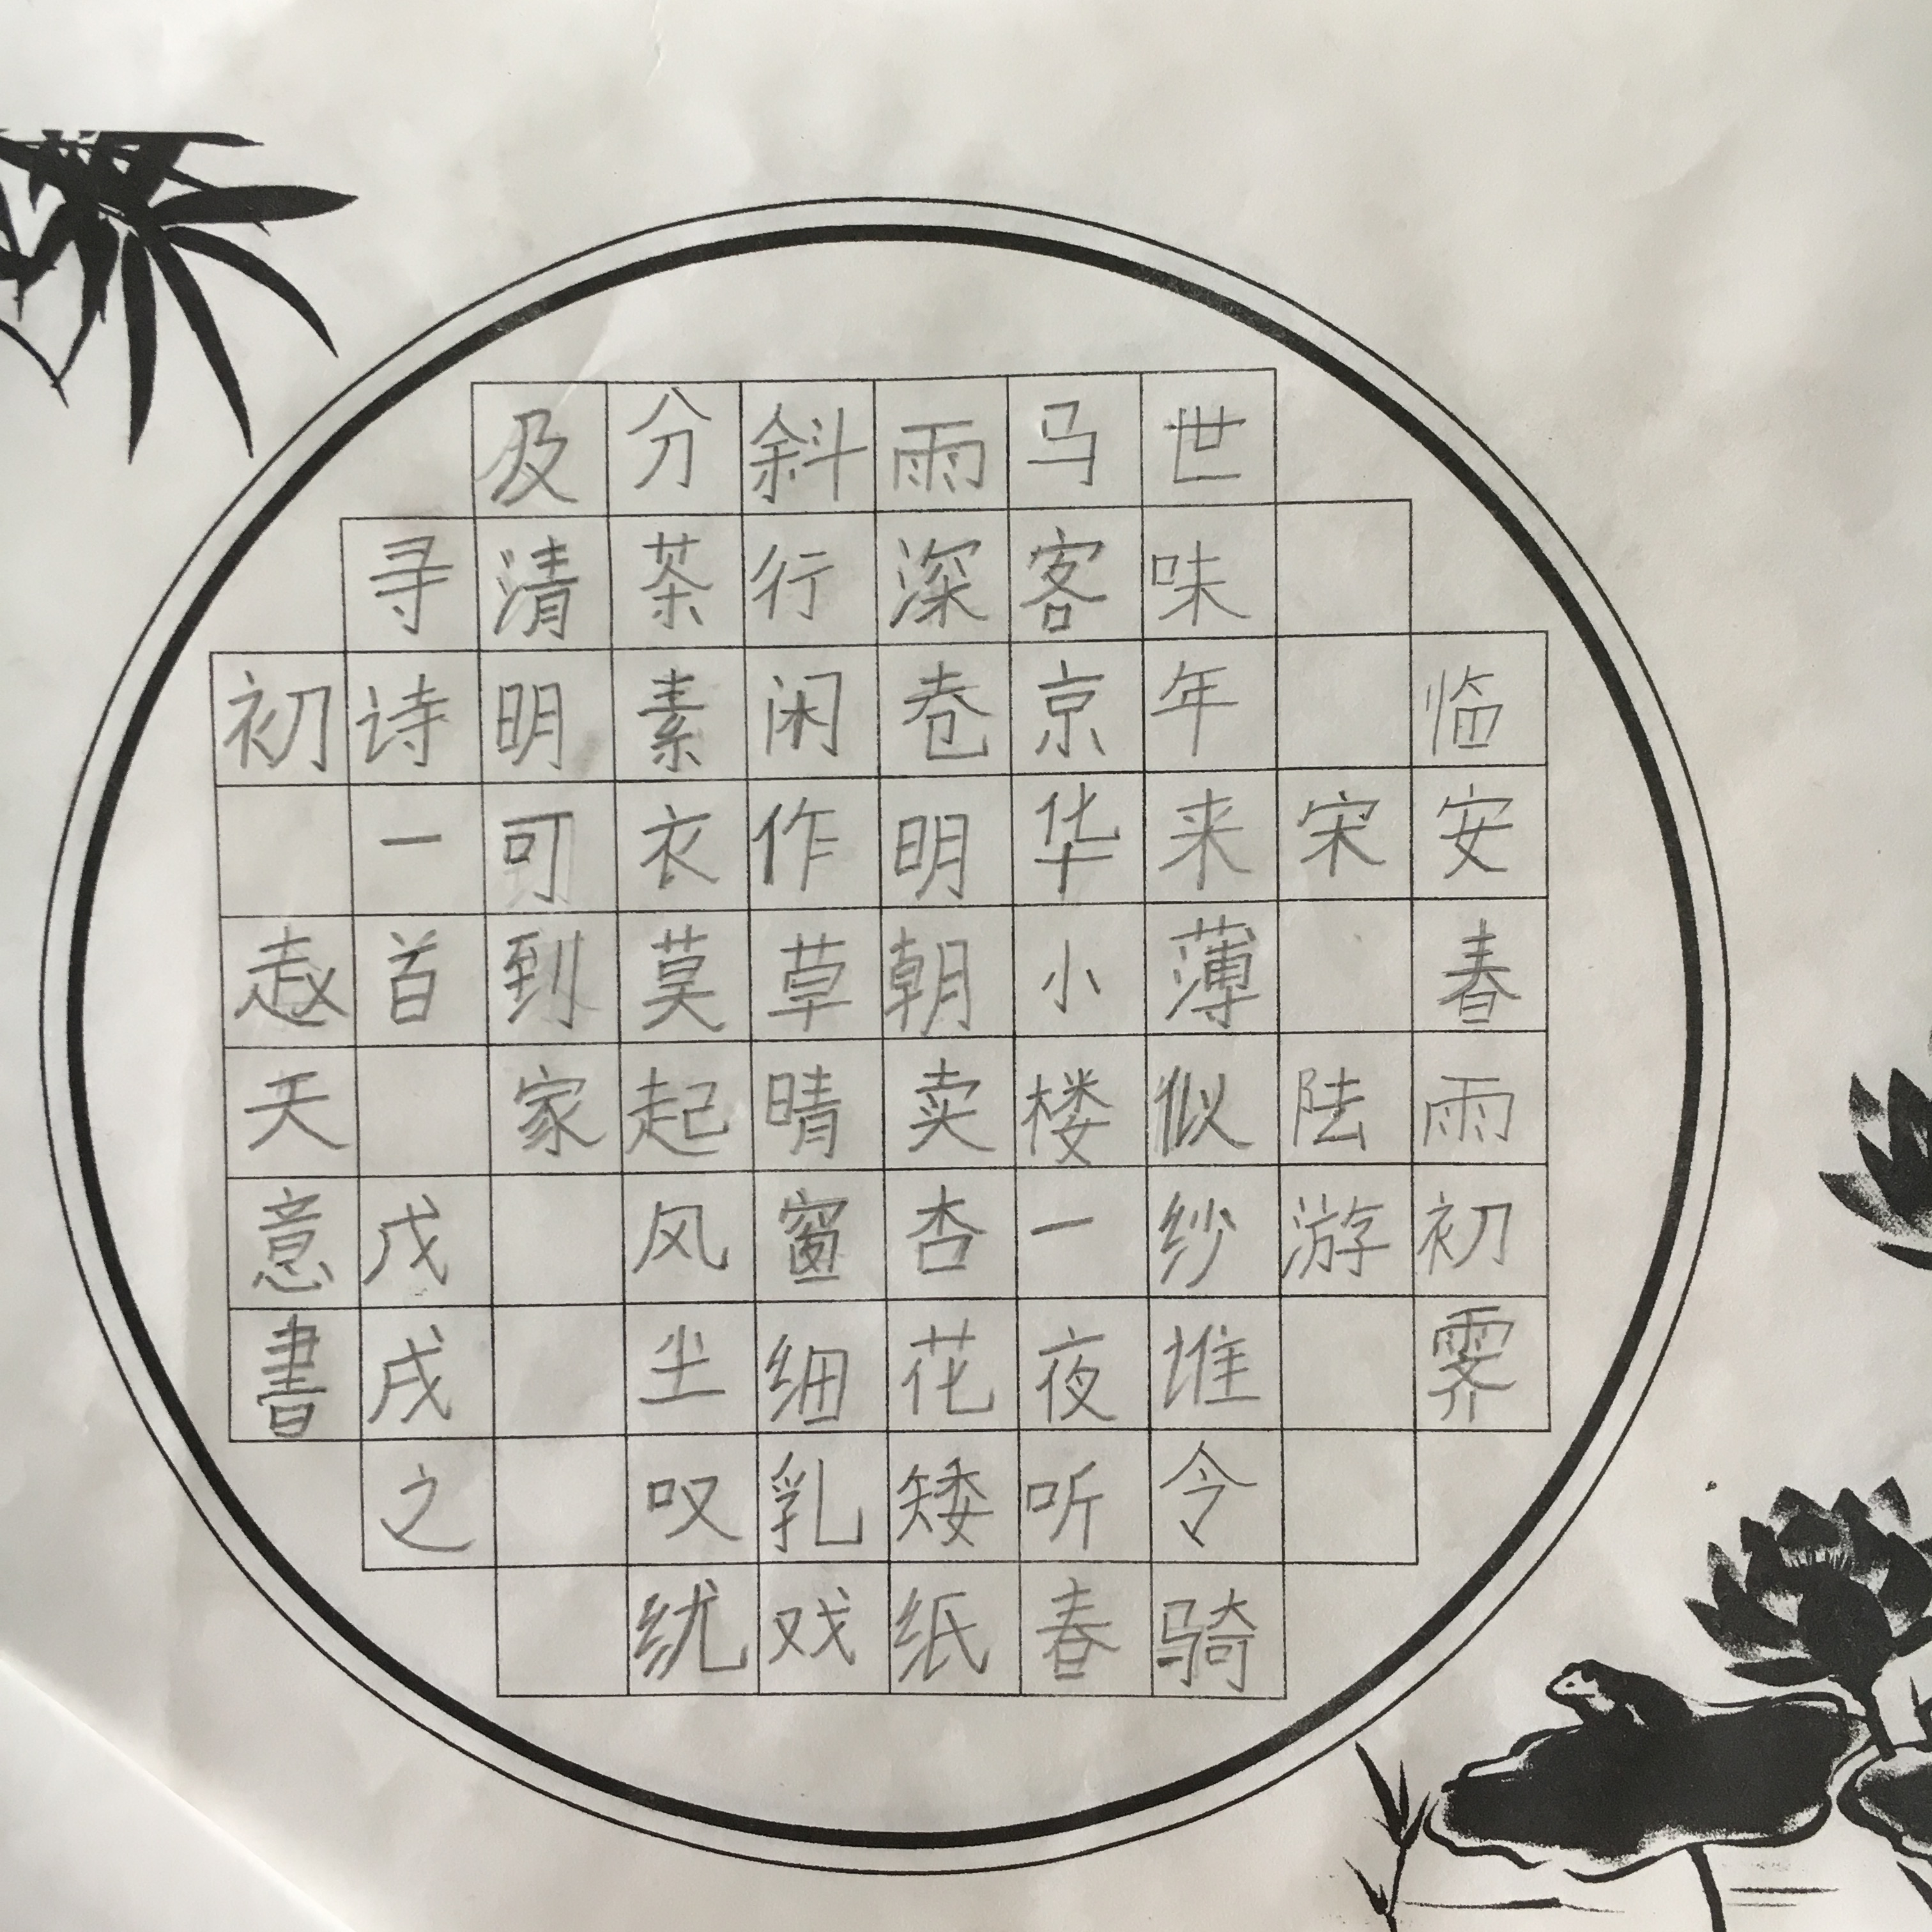 临安春雨初霁
宋 陆游
世味年来薄似纱堆令骑
马客京华小楼一夜听春
雨深巷明朝卖杏花矮纸
斜行闲作草晴窗细乳戏
分茶素衣莫起风尘叹犹
及清明可到家
寻诗一首 戊戌之
初 赵天意書